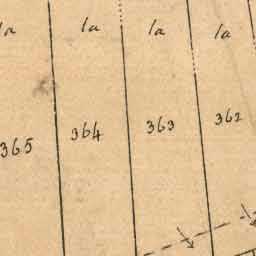 1a 1a 1a 1a
365 364 363 362